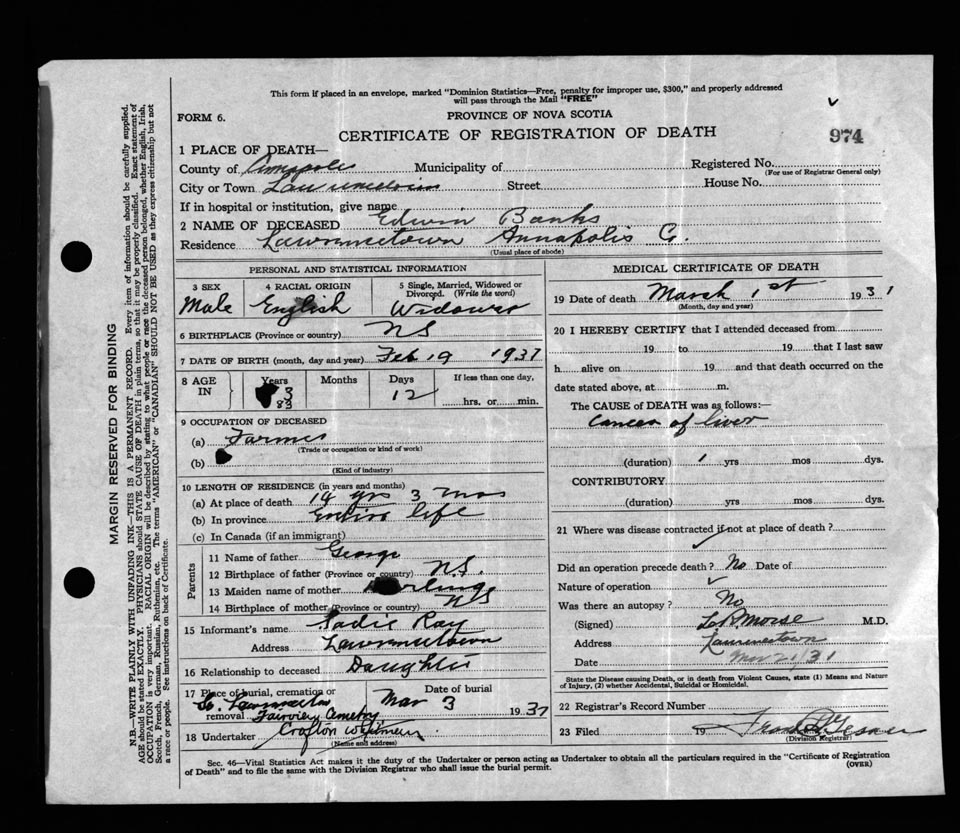 This form if placed in an envelope, marked "Dominion Statistics—Free, penalty for improper use, $300," and properly addressed
will pass through the Mail "FREE"
FORM 6.
PROVINCE OF NOVA SCOTIA
CERTIFICATE OF REGISTRATION OF DEATH
974
1 PLACE OF DEATH—
County of Annapolis Municipality of Registered No.
(For use of Registrar General only)
City or Town Lawrencetown Street House No.
If in hospital or institution, give name
2 NAME OF DECEASED Edwin Banks
Residence Lawrencetown Annapolis Co.
(Usual place of abode)
PERSONAL AND STATISTICAL INFORMATION
3 SEX 4 RACIAL ORIGIN 5 Single, Married, Widowed or Divorced. (Write the word)
Male English Widower
6 BIRTHPLACE (Province or country) NS
7 DATE OF BIRTH (month, day and year) Feb 19 1937
8 AGE IN Years Months Days If less than one day,
83 12 hrs. or min.
9 OCCUPATION OF DECEASED
(a) Farmer
(Trade or occupation or kind of work)
(b)
(Kind of industry)
10 LENGTH OF RESIDENCE (in years and months)
(a) At place of death 14 yrs 3 mos
(b) In province Entire life
(c) In Canada (if an immigrant)
Parents
11 Name of father George
12 Birthplace of father (Province or country) N.S.
13 Maiden name of mother
14 Birthplace of mother (Province or country) NS
15 Informant's name Sadie Ray
Address Lawrencetown
16 Relationship to deceased Daughter
17 Place of burial, cremation or removal Fairview Cemetry
Date of burial Mar 3 193
18 Undertaker Crofton Whitman
(Name and address)
MEDICAL CERTIFICATE OF DEATH
19 Date of death March 1st 1931
(Month, day and year)
20 I HEREBY CERTIFY that I attended deceased from
19 to 19 that I last saw
h alive on 19 and that death occurred on the
date stated above, at m.
The CAUSE of DEATH was as follows:—
Cancer of liver
(duration) 1 yrs mos dys.
CONTRIBUTORY
(duration) yrs mos dys.
21 Where was disease contracted if not at place of death?
Did an operation precede death? No Date of
Nature of operation
Was there an autopsy? No
(Signed) Morse M.D.
Address Lawrencetown
Date Mar 2/31
State the Disease causing Death, or in death from Violent Causes, state (1) Means and Nature
of Injury, (2) whether Accidental, Suicidal or Homicidal.
22 Registrar's Record Number
23 Filed 19
(Division Registrar)
Sec. 46—Vital Statistics Act makes it the duty of the Undertaker or person acting as Undertaker to obtain all the particulars required in the "Certificate of Registration
of Death" and to file the same with the Division Registrar who shall issue the burial permit.
(OVER)
MARGIN RESERVED FOR BINDING
N.B.—WRITE PLAINLY WITH UNFADING INK—THIS IS A PERMANENT RECORD. Every item of information should be carefully supplied.
AGE should be stated EXACTLY. PHYSICIANS should STATE CAUSE OF DEATH in plain terms, so that it may be properly classified. Exact statement of
OCCUPATION is very important. RACIAL ORIGIN will be described by stating to what people or race the deceased person belonged, whether English, Irish,
Scotch, French, German, Russian, Ruthenian, etc. The terms "AMERICAN" or "CANADIAN" SHOULD NOT BE USED as they express citizenship but not
a race or people. See instructions on back of Certificate.